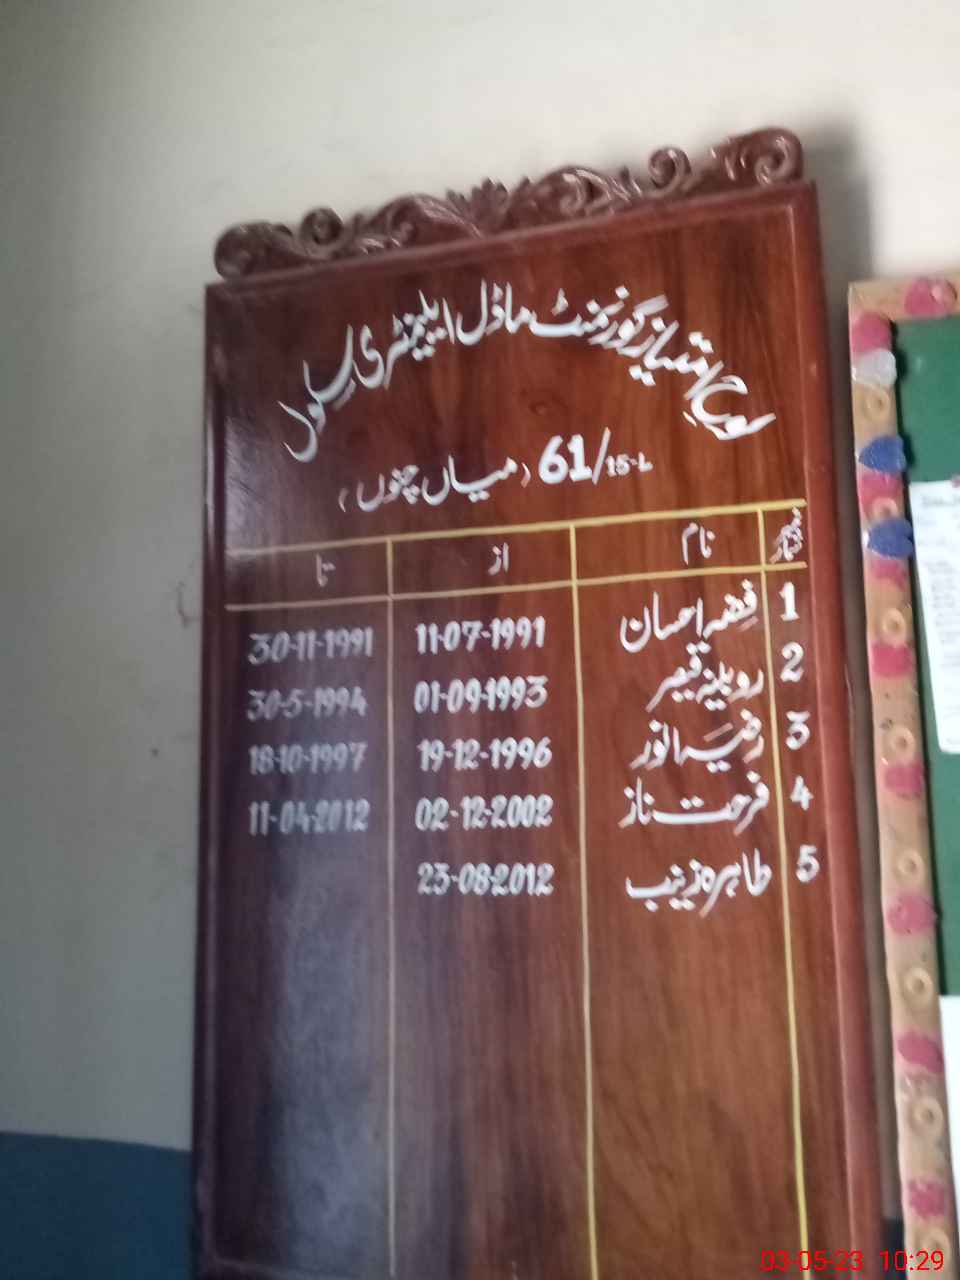 لوحِ امتیاز گورنمنٹ ماڈل ایلیمنٹری سکول
61/15-L (میاں چنوں)
نمبر شمار نام از تا
1 فضہ احسان 11-07-1991 30-11-1991
2 روبینہ قیصر 01-09-1993 30-5-1994
3 رضیہ انور 19-12-1996 18-10-1997
4 فرحت ناز 02-12-2002 11-04-2012
5 طاہرہ زینب 23-08-2012
03-05-23 10:29